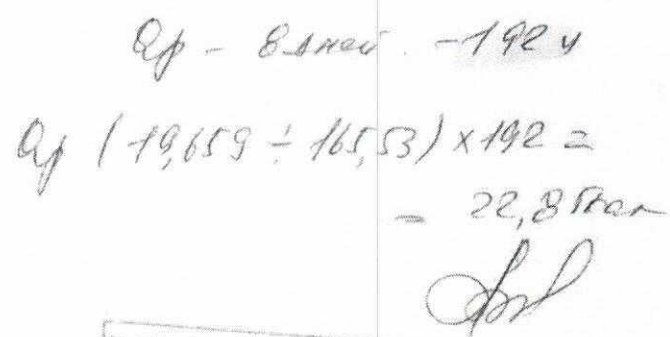 Qр - 8 дней - 192 ч
Qр (19,659 ÷ 165,53) × 192 =
= 22,8 Гкал